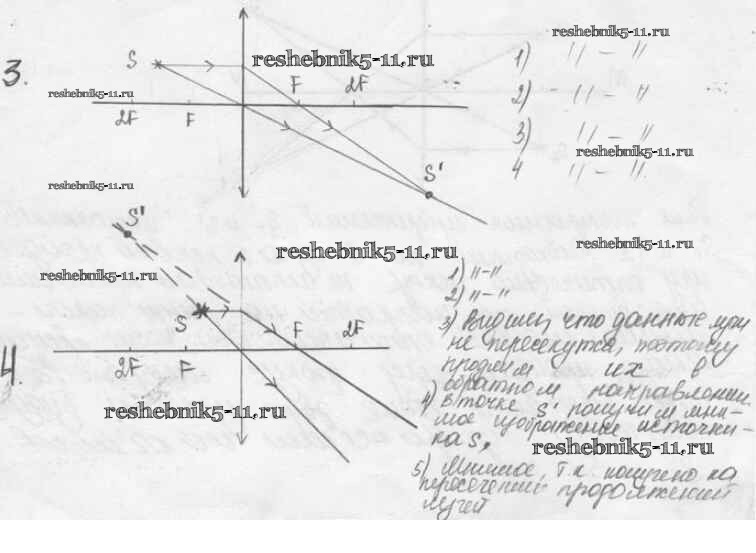 3.
S
F
2F
2F
F
S'
1) "–"
2) "–"
3) "–"
4 "–"
reshebnik5-11.ru
reshebnik5-11.ru
reshebnik5-11.ru
reshebnik5-11.ru
reshebnik5-11.ru
4.
S'
S
F
2F
2F
F
reshebnik5-11.ru
reshebnik5-11.ru
reshebnik5-11.ru
1) "–"
2) "–"
3) Видим, что данные лучи
не пересекутся, поэтому
продлим их в
обратном направлении
4) в точке S' получим мни-
мое изображение источни-
ка S,
reshebnik5-11.ru
reshebnik5-11.ru
5) Мнимое, т.к. получено на
пересечении продолжений
лучей